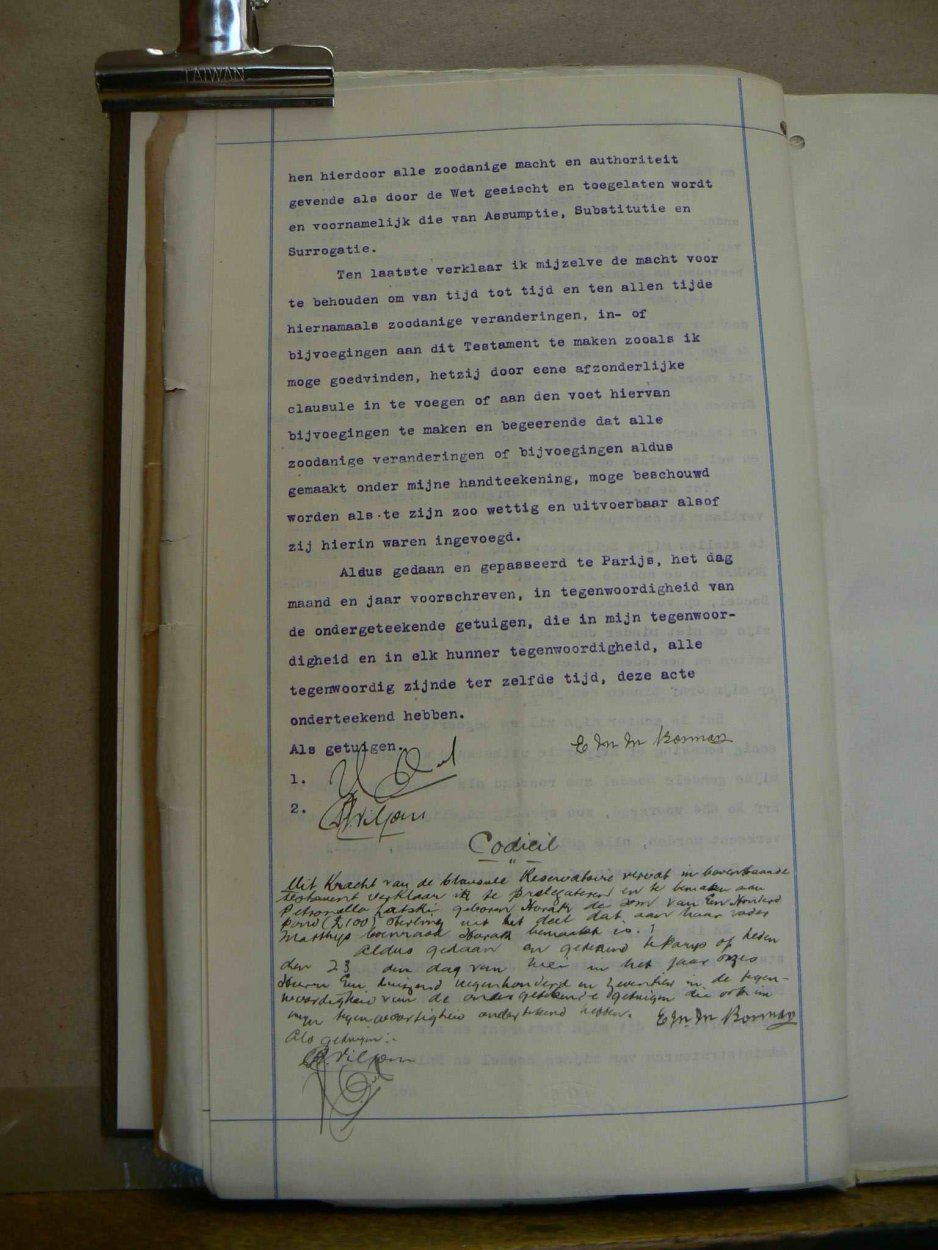 TAIWAN
hen hierdoor alle zoodanige macht en authoriteit
gevende als door de Wet geeischt en toegelaten wordt
en voornamelijk die van Assumptie, Substitutie en
Surrogatie.
Ten laatste verklaar ik mijzelve de macht voor
te behouden om van tijd tot tijd en ten allen tijde
hiernamaals zoodanige veranderingen, in- of
bijvoegingen aan dit Testament te maken zooals ik
moge goedvinden, hetzij door eene afzonderlijke
clausule in te voegen of aan den voet hiervan
bijvoegingen te maken en begeerende dat alle
zoodanige veranderingen of bijvoegingen aldus
gemaakt onder mijne handteekening, moge beschouwd
worden als te zijn zoo wettig en uitvoerbaar alsof
zij hierin waren ingevoegd.
Aldus gedaan en gepasseerd te Parijs, het dag
maand en jaar voorschreven, in tegenwoordigheid van
de ondergeteekende getuigen, die in mijn tegenwoor-
digheid en in elk hunner tegenwoordigheid, alle
tegenwoordig zijnde ter zelfde tijd, deze acte
onderteekend hebben.
Als getuigen.
E M M Borman
1.
2. Viljoen
Codicil
Uit Kracht van de Clausule Reservatoire vervat in bovenstaande
testament verklaar ik te prelegateren en te bemaken aan
Petronella geboren Horak de som van Een Honderd
pond (£100) Sterling uit het deel dat aan haar vader
Matthys Coenraad Horak bemaakt is.
Aldus gedaan en geteekend te Parys op heden
den 23 den dag van Mei in het jaar onzes
Heeren Een duizend negenhonderd en zeventien in de tegen-
woordigheid van de ondergeteekende getuigen die ook in
myn tegenwoordigheid onderteekend hebben. E M M Borman
Als getuigen:-
Viljoen